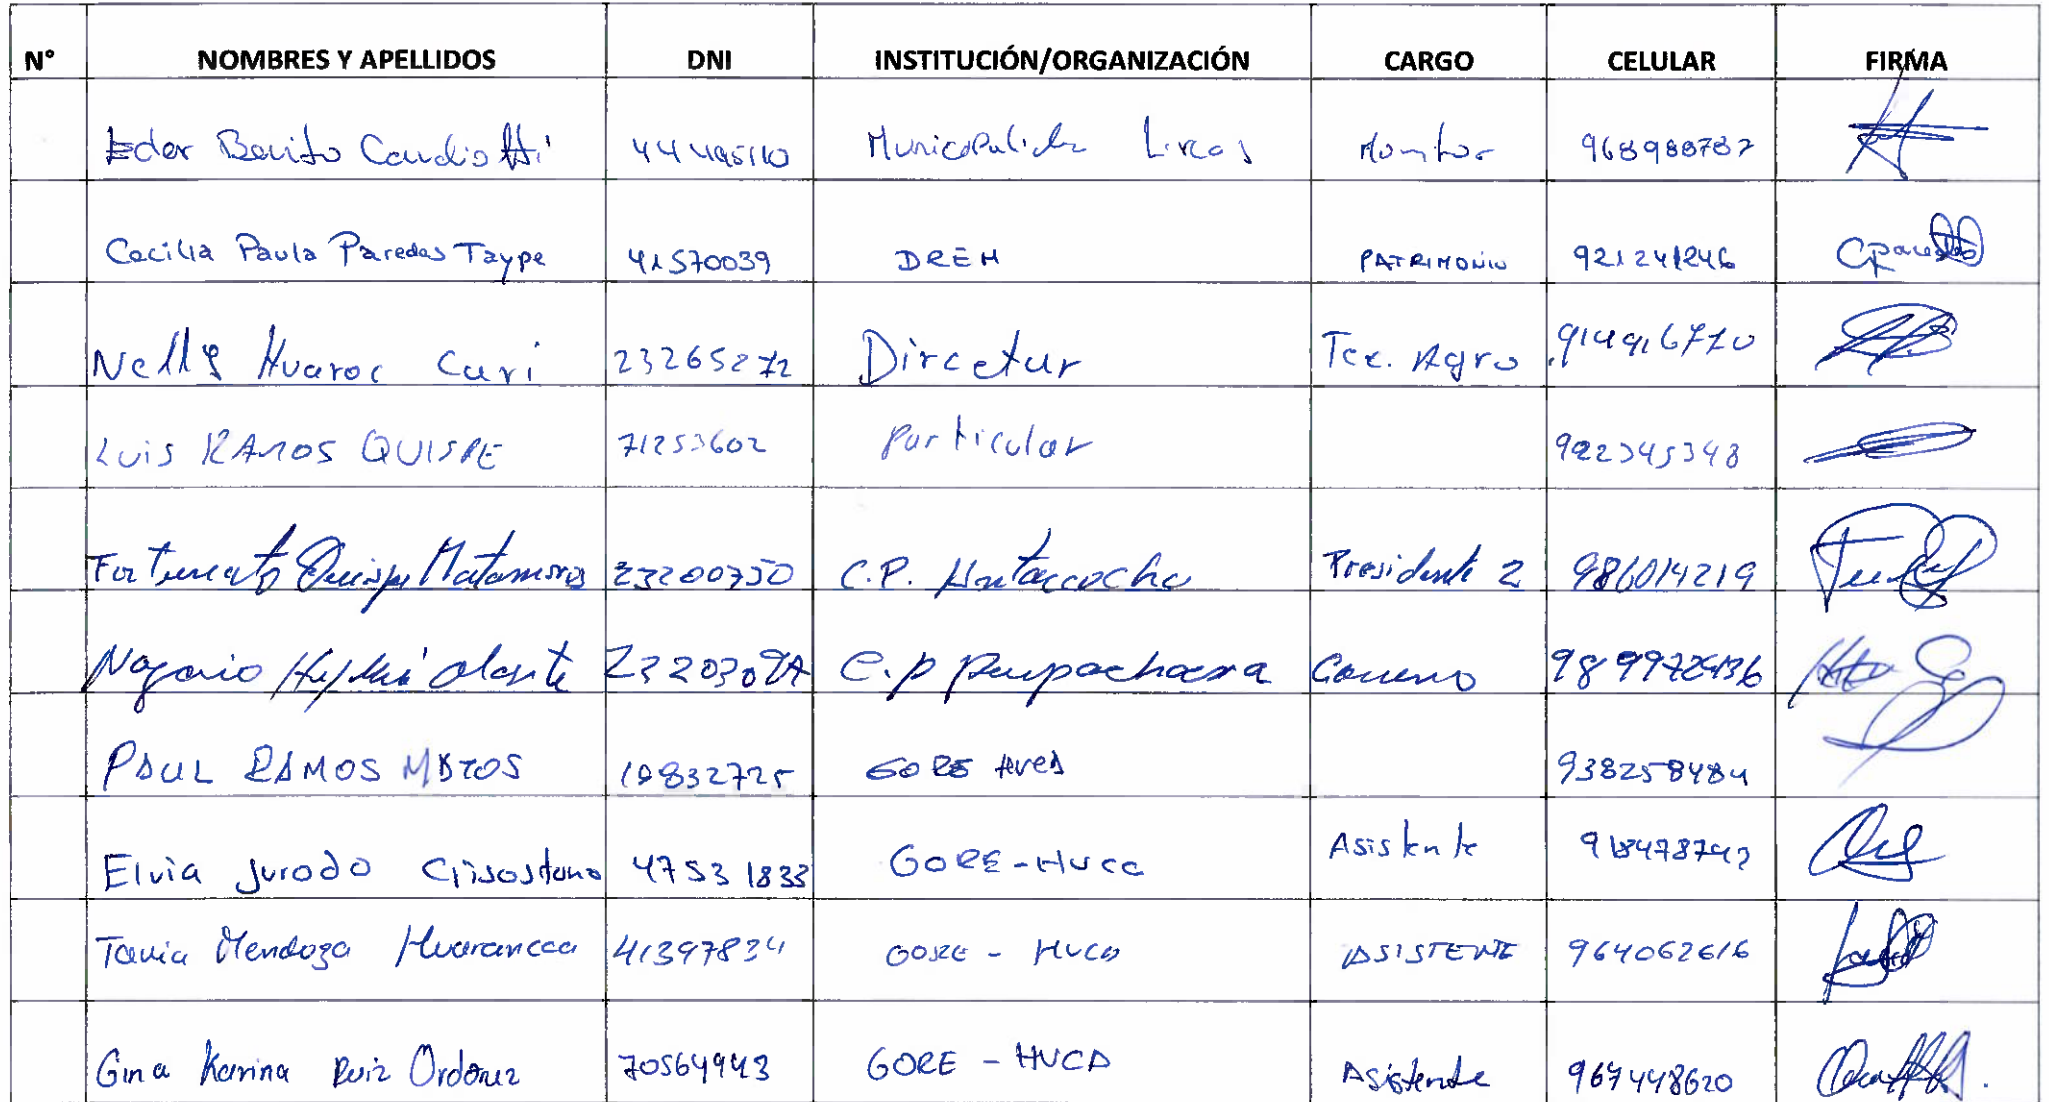 N° NOMBRES Y APELLIDOS DNI INSTITUCIÓN/ORGANIZACIÓN CARGO CELULAR FIRMA
Eder Benito Candiotti 44495110 Lircas Monitor 968988787
Cecilia Paula Paredes Taype 41570039 DREM PATRIMONIO 921241246
Nelly Huaroc Curi 23265272 Dircetur Tec. Agro 914916770
Luis RAMOS QUISPE 71253602 Particular 922345348
Fortunato Quispe Matamoros 23200750 C.P. Antaccocha Presidente 2 986014219
C.p
PAUL RAMOS MATOS 19832725 GORE HVCA 938258484
Elvia Jurado Crisostomo 47531833 GORE-HVCA Asistente
Tania Mendoza Huarancca 41397834 GORE - HVCA ASISTENTE 964062616
Gina Karina Ruiz Ordoñez 70564943 GORE - HVCA Asistente 967448620